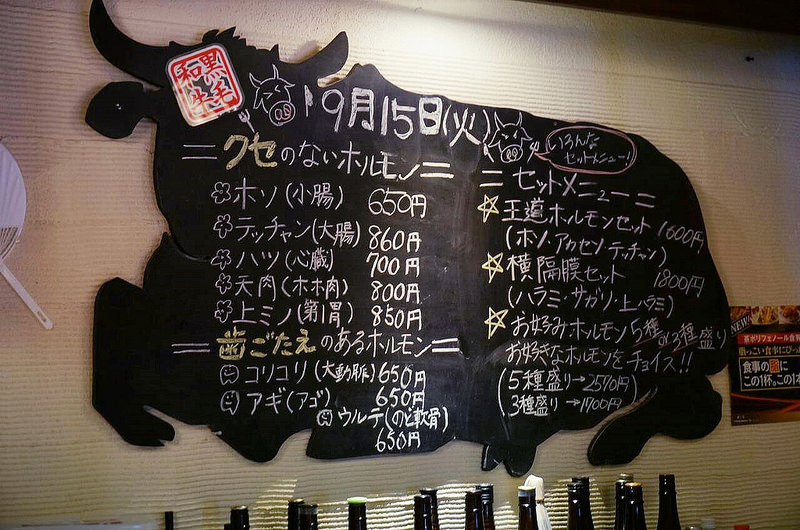 黒毛
和牛
9月15日(火)
=クセのないホルモン=
ホソ(小腸) 650円
テッチャン(大腸) 860円
ハツ(心臓) 700円
天肉(ホホ肉) 800円
上ミノ(第1胃) 850円
=歯ごたえのあるホルモン=
コリコリ(大動脈) 650円
アギ(アゴ) 650円
ウルテ(のど軟骨)
650円
いろんな
セットメニュー!
=セットメニュー=
☆王道ホルモンセット 1600円
(ホソ・アカセン・テッチャン)
☆横隔膜セット 1800円
(ハラミ・サガリ・上ハラミ)
☆お好みホルモン5種or3種盛り
お好きなホルモンをチョイス!!
(5種盛り→2570円)
(3種盛り→1700円)
NEW
茶ポリフェノール
脂っこい食事に
食事の脂に
この1杯。この1本